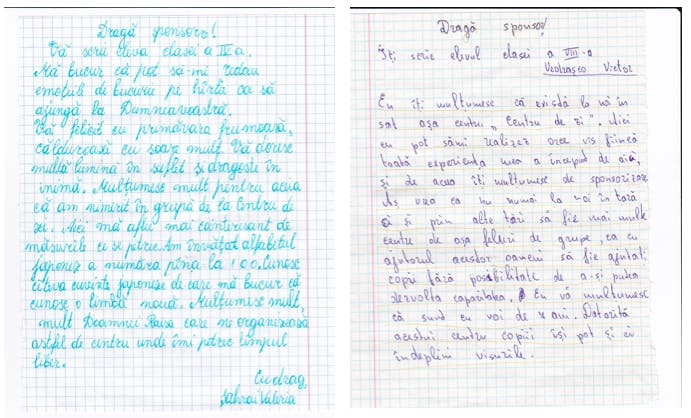 Dragă sponsor!
Vă scrie eleva clasei a IV a.
Mă bucur că pot să-mi redau
emoțiile de bucurie pe hîrtă ca să
ajungă la Dumneavoastră.
Vă felicit cu primăvara frumoasă,
călduroasă cu soare mult. Vă doresc
multă lumină în suflet și dragoste în
inimă. Mulțumesc mult pentru acea
că am nimirit în grupa de la Centru de
zi. Aici mă aflu mai cointeresant de
măsurile ce se petrec. Am învățat alfabetul
japonez a număra pîna la 100. Cunosc
cîteva cuvinte japoneze de care mă bucur că
cunosc o limbă nouă. Mulțumesc mult,
mult Doamnei Raisa care ne organizează
astfel de centru unde îmi petrec timpul
liber.
Cu drag,
Valeria
Dragă sponsor!
Îți scrie elevul clasei a VIII-a
Victor
Eu îți multumesc că există la nă în
sat așa centru „Centru de zi". Aici
eu pot sămi realizez orce vis fiincă
toată experiența mea a început de aici,
și de acea îți multumesc de sponsorizare.
Aș vrea ca nu numai la noi în țară
ci și prin alte țări să fie mai multe
centre de așa feluri de grupe, ca cu
ajutorul acestor oameni să fie ajutați
copii fără posibilitate de a-și putea
dezvolta capacitatea. Eu vă multumesc
că sunt cu voi de ani. Datorită
acestui centru copiii își pot și ei
îndeplim visurile.